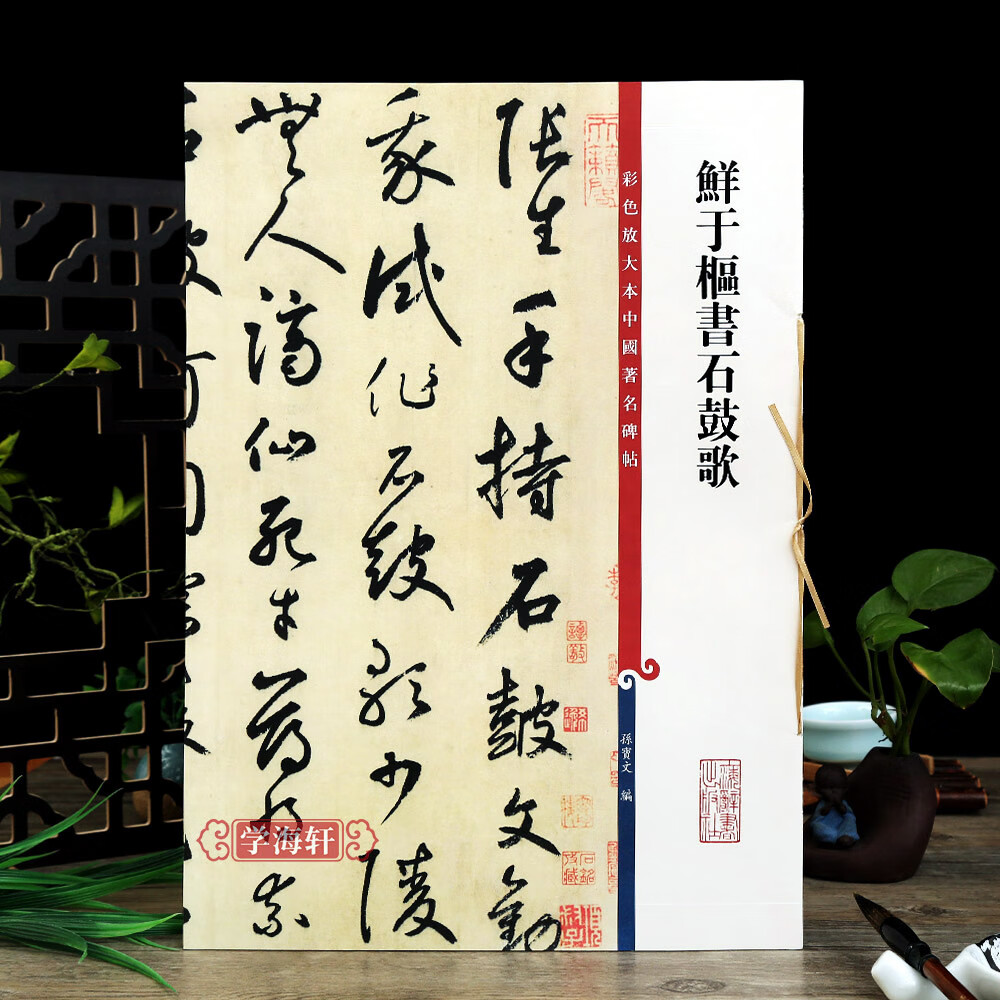 鮮于樞書石鼓歌
彩色放大本中國著名碑帖
孫寶文 編
上海辭書出版社
张生手持石鼓文勸
我試作石鼓歌少陵
無人謫仙死才薄將奈
石鼓何
学海轩